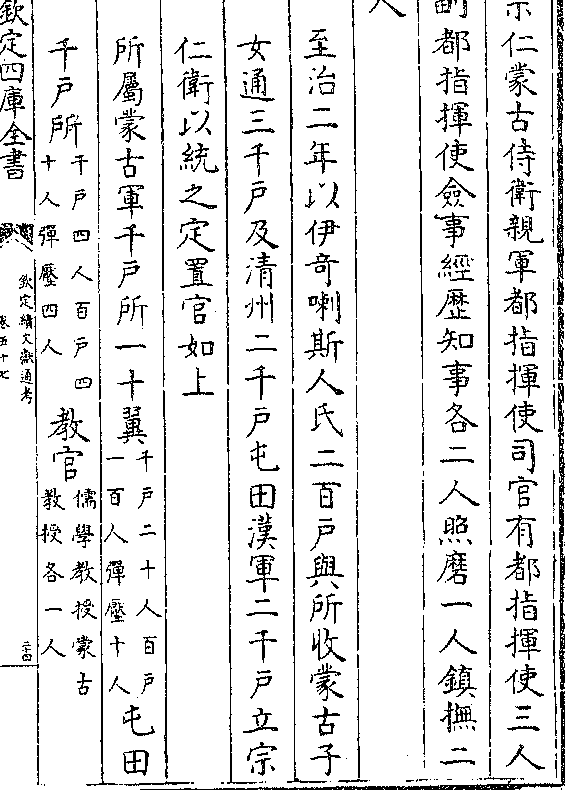 宗仁蒙古侍衛親軍都指揮使司官有都指揮使三人
副都指揮使僉事經歷知事各二人照磨一人鎮撫二
人
至治二年以伊奇喇斯人氏二百戶與所收蒙古子
女通三千戶及清州二千戶屯田漢軍二千戶立宗
仁衛以統之定置官如上
所屬蒙古軍千戶所一十翼千戶二十人百戶一百人彈壓十人屯田
千戶所千戶四人百戶四十人彈壓四人教官儒學教授蒙古教授各一人
欽定四庫全書
欽定續文獻通考
卷五十七
二十四